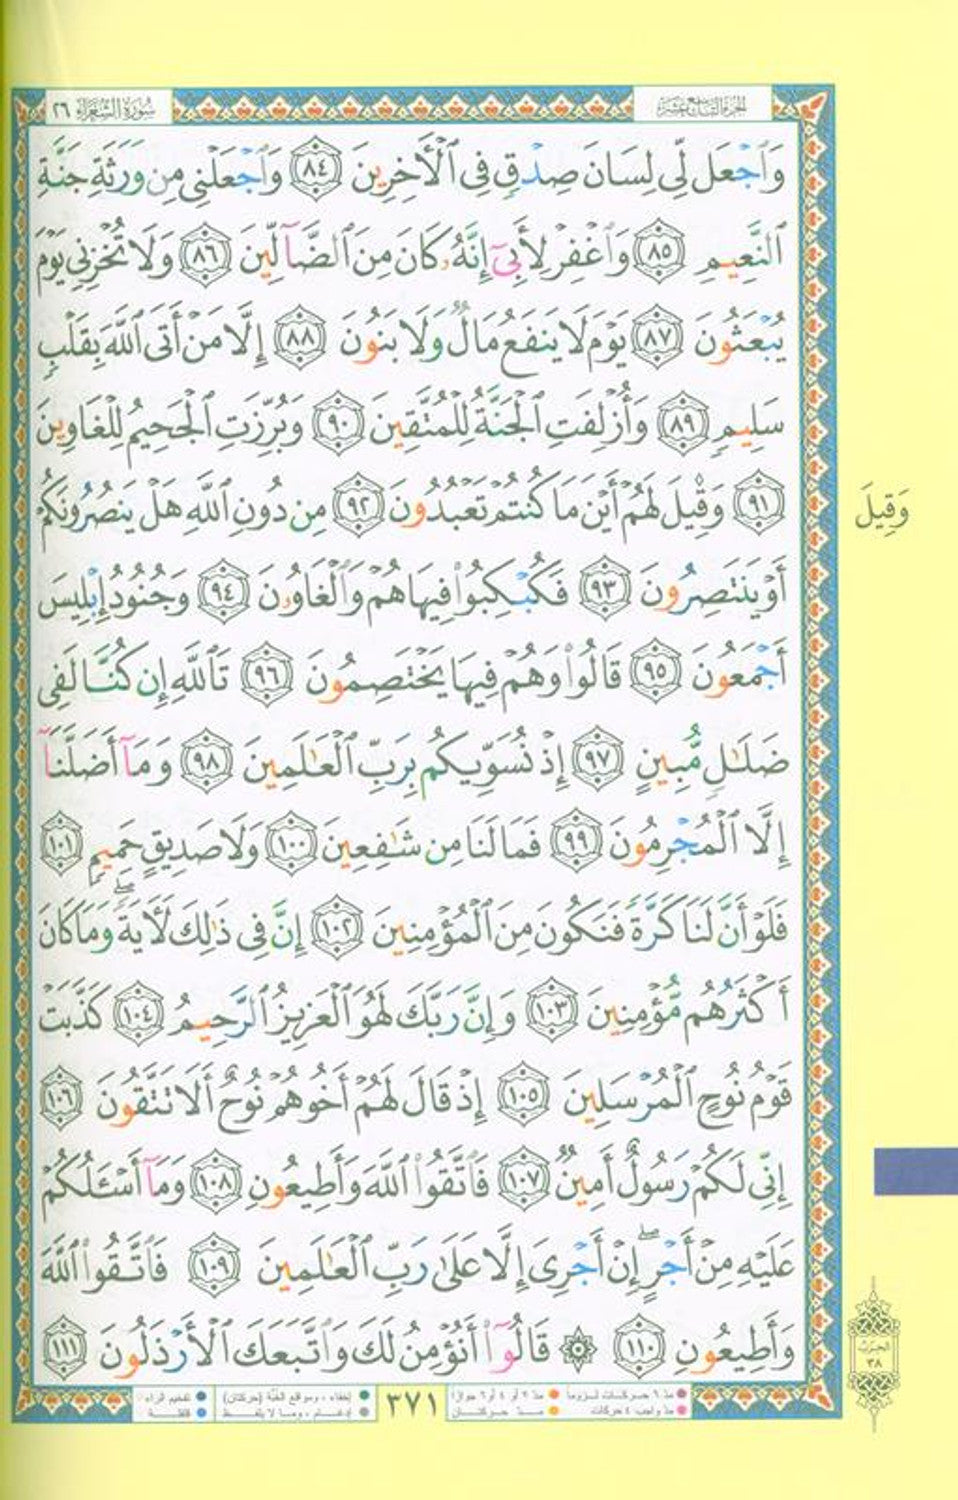 الجزء التاسع عشر
سورة الشعراء ٢٦
وَٱجْعَل لِّى لِسَانَ صِدْقٍ فِى ٱلْأَخِرِينَ ٨٤ وَٱجْعَلْنِى مِن وَرَثَةِ جَنَّةِ
ٱلنَّعِيمِ ٨٥ وَٱغْفِرْ لِأَبِىٓ إِنَّهُۥ كَانَ مِنَ ٱلضَّآلِّينَ ٨٦ وَلَا تُخْزِنِى يَوْمَ
يُبْعَثُونَ ٨٧ يَوْمَ لَا يَنفَعُ مَالٌ وَلَا بَنُونَ ٨٨ إِلَّا مَنْ أَتَى ٱللَّهَ بِقَلْبٍ
سَلِيمٍ ٨٩ وَأُزْلِفَتِ ٱلْجَنَّةُ لِلْمُتَّقِينَ ٩٠ وَبُرِّزَتِ ٱلْجَحِيمُ لِلْغَاوِينَ
٩١ وَقِيلَ لَهُمْ أَيْنَ مَا كُنتُمْ تَعْبُدُونَ ٩٢ مِن دُونِ ٱللَّهِ هَلْ يَنصُرُونَكُمْ
وَقِيلَ
أَوْ يَنتَصِرُونَ ٩٣ فَكُبْكِبُوا۟ فِيهَا هُمْ وَٱلْغَاوُۥنَ ٩٤ وَجُنُودُ إِبْلِيسَ
أَجْمَعُونَ ٩٥ قَالُوا۟ وَهُمْ فِيهَا يَخْتَصِمُونَ ٩٦ تَٱللَّهِ إِن كُنَّا لَفِى
ضَلَـٰلٍ مُّبِينٍ ٩٧ إِذْ نُسَوِّيكُم بِرَبِّ ٱلْعَـٰلَمِينَ ٩٨ وَمَآ أَضَلَّنَآ
إِلَّا ٱلْمُجْرِمُونَ ٩٩ فَمَا لَنَا مِن شَـٰفِعِينَ ١٠٠ وَلَا صَدِيقٍ حَمِيمٍ ١٠١
فَلَوْ أَنَّ لَنَا كَرَّةً فَنَكُونَ مِنَ ٱلْمُؤْمِنِينَ ١٠٢ إِنَّ فِى ذَٰلِكَ لَأَيَةً ۖ وَمَا كَانَ
أَكْثَرُهُم مُّؤْمِنِينَ ١٠٣ وَإِنَّ رَبَّكَ لَهُوَ ٱلْعَزِيزُ ٱلرَّحِيمُ ١٠٤ كَذَّبَتْ
قَوْمُ نُوحٍ ٱلْمُرْسَلِينَ ١٠٥ إِذْ قَالَ لَهُمْ أَخُوهُمْ نُوحٌ أَلَا تَتَّقُونَ ١٠٦
إِنِّى لَكُمْ رَسُولٌ أَمِينٌ ١٠٧ فَٱتَّقُوا۟ ٱللَّهَ وَأَطِيعُونِ ١٠٨ وَمَآ أَسْـَٔلُكُمْ
عَلَيْهِ مِنْ أَجْرٍ ۖ إِنْ أَجْرِىَ إِلَّا عَلَىٰ رَبِّ ٱلْعَـٰلَمِينَ ١٠٩ فَٱتَّقُوا۟ ٱللَّهَ
وَأَطِيعُونِ ١١٠ ۞ قَالُوٓا۟ أَنُؤْمِنُ لَكَ وَٱتَّبَعَكَ ٱلْأَرْذَلُونَ ١١١
الحزب
٣٨
مدّ ٦ حركات لزوماً مدّ ٢ أو ٤ أو ٦ جوازاً ٣٧١ إخفاء، ومواقع الغُنَّة (حركتان) تفخيم الراء
مدّ واجب ٤ حركات مدّ حركتان إدغام، وما لا يُلفظ قلقلة